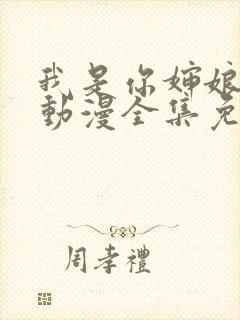 我是你婶娘
動漫全集免
周孝禮